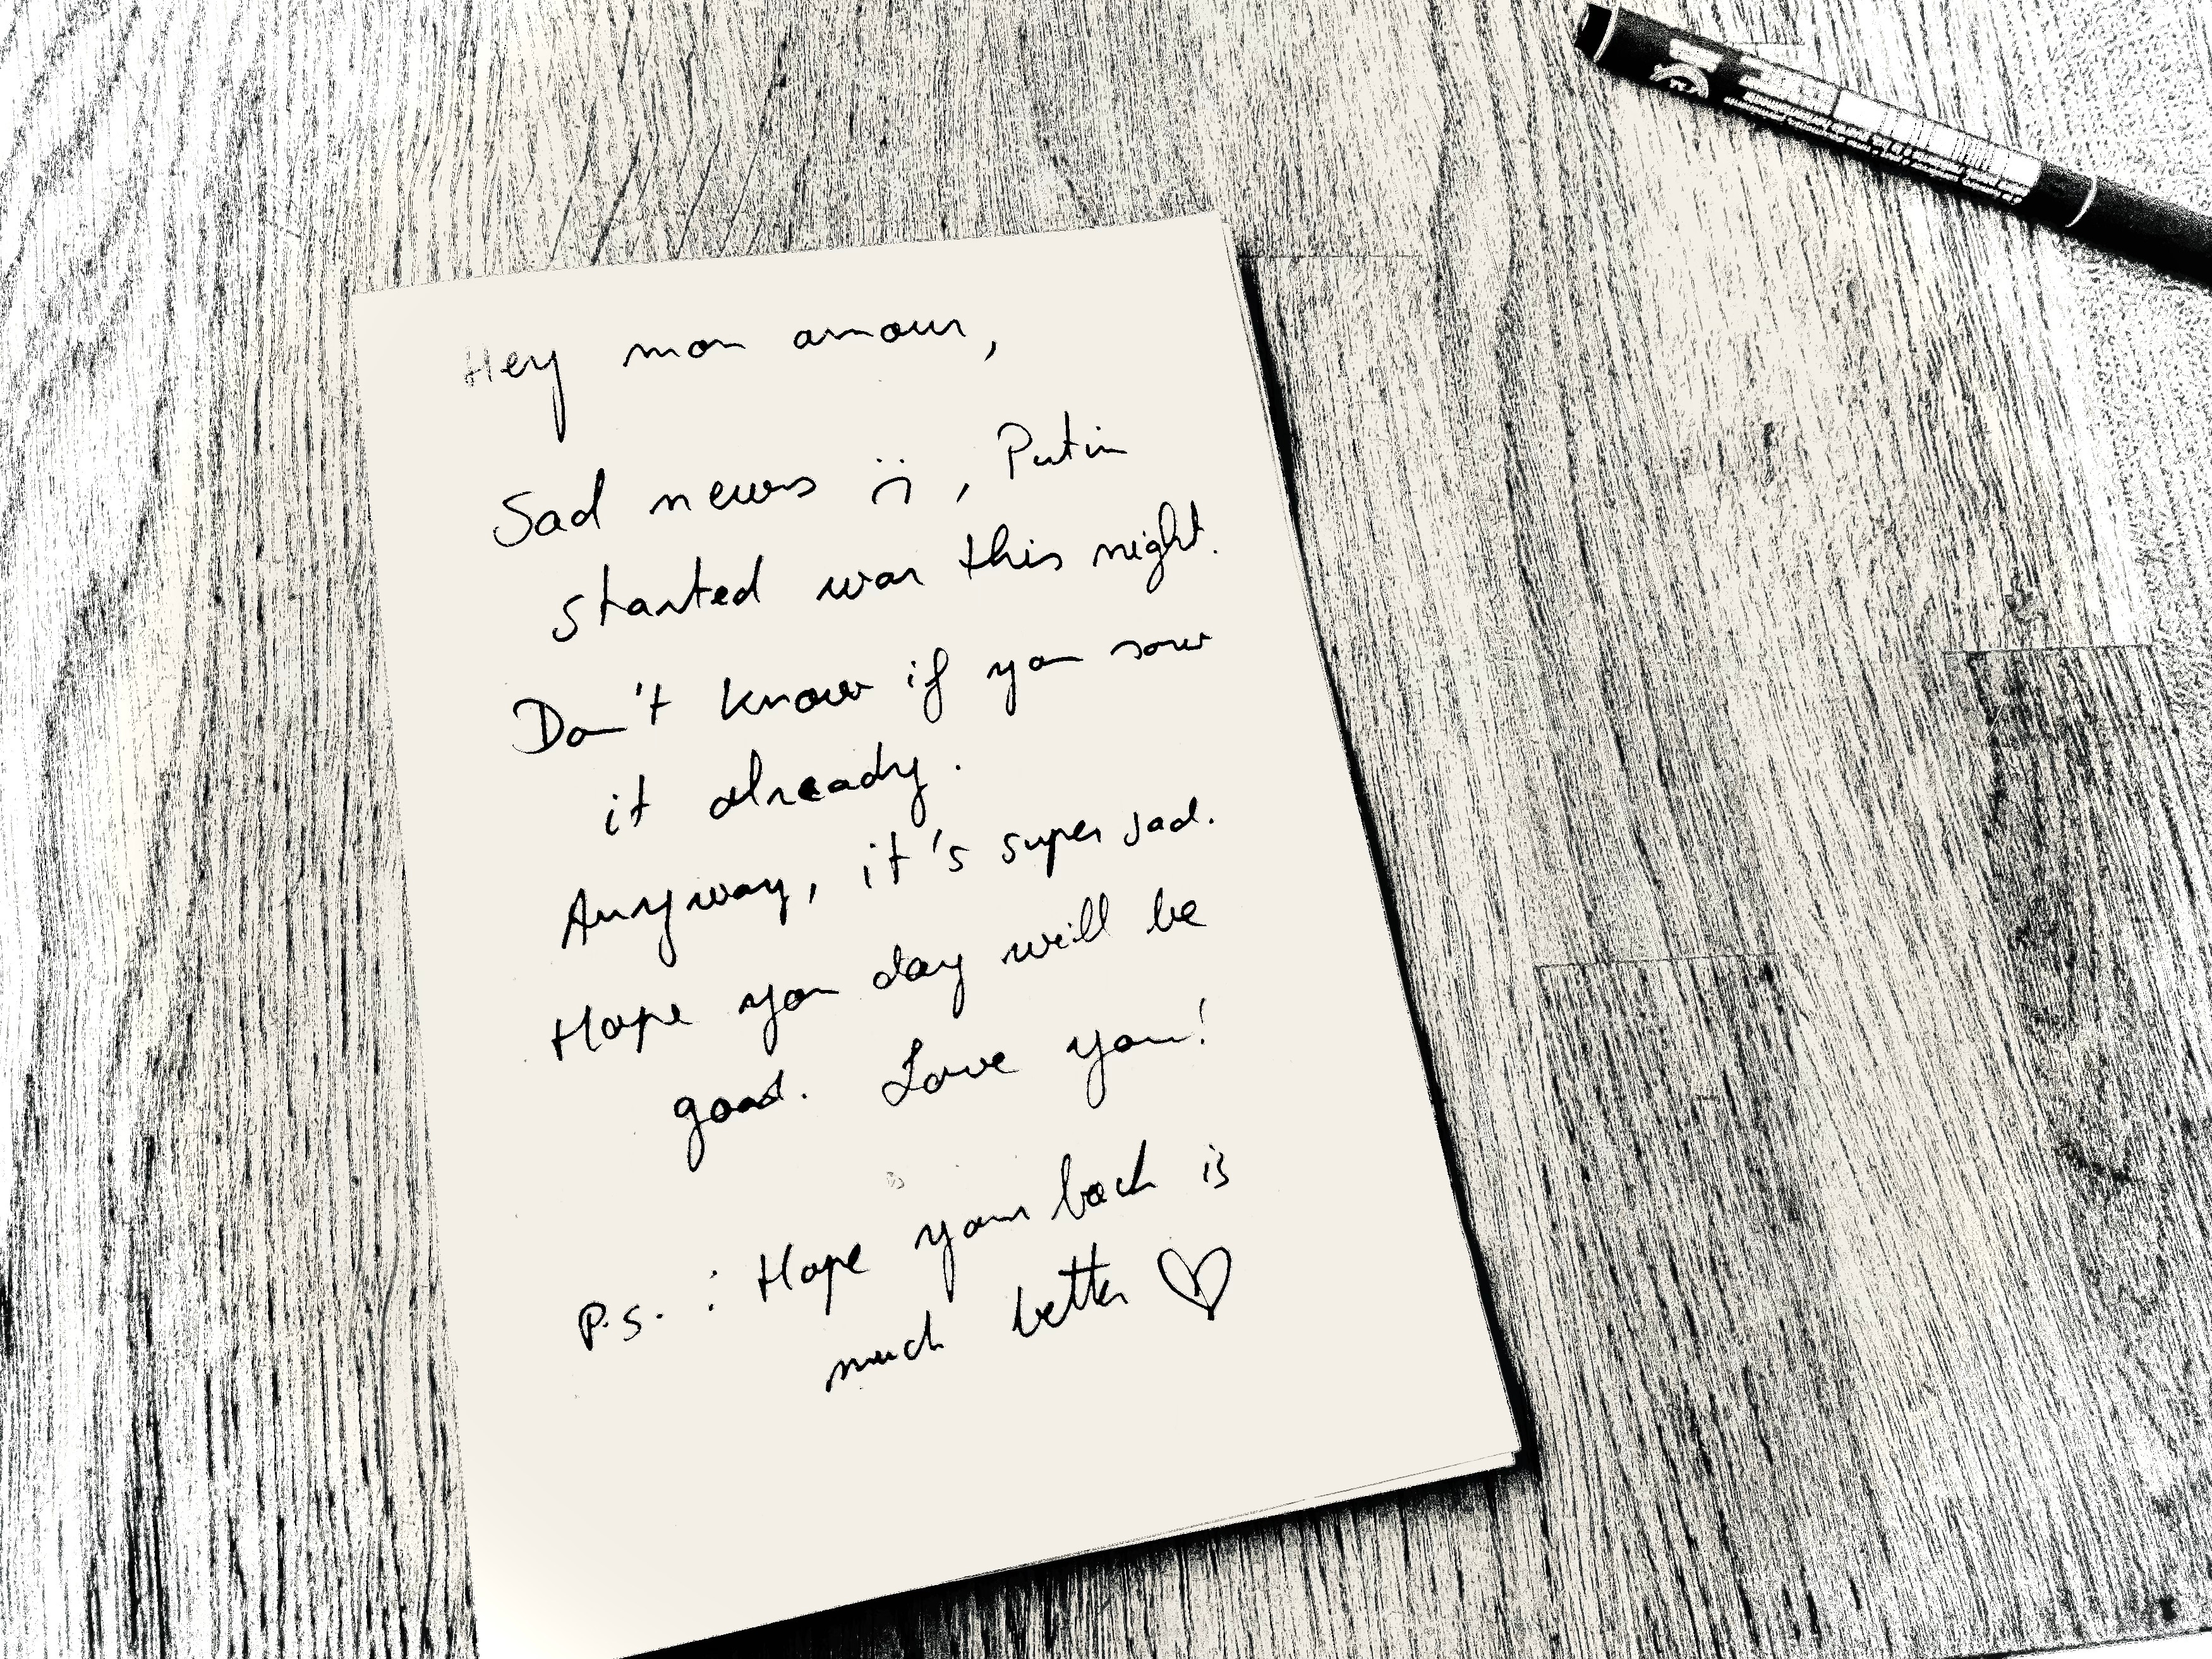 Hey mon amour,
Sad news :(, Putin
started war this night.
Don't know if you saw
it already.
Anyway, it's super sad.
Hope you day will be
good. Love you!
P.S. : Hope your back is
much better ♡